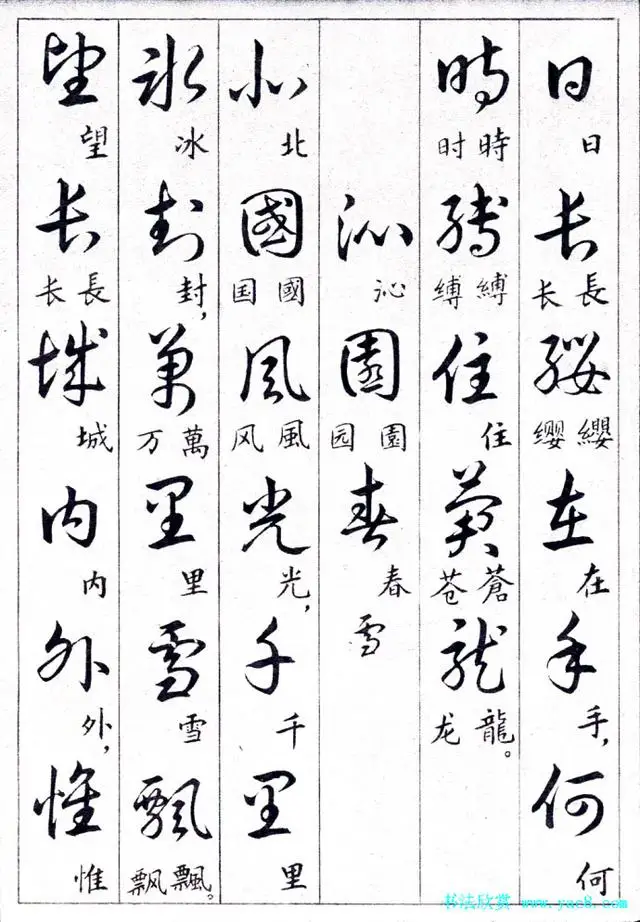 日長纓在手何
日 长長 缨纓 在 手, 何
時縛住蒼龍
时時 缚縛 住 苍蒼 龙龍。
沁園春
沁 园園 春 雪
北國風光千里
北 国國 风風 光, 千 里
冰封萬里雪飄
冰 封, 万萬 里 雪 飘飄。
望長城内外惟
望 长長 城 内 外, 惟
书法欣赏 www.yac8.com